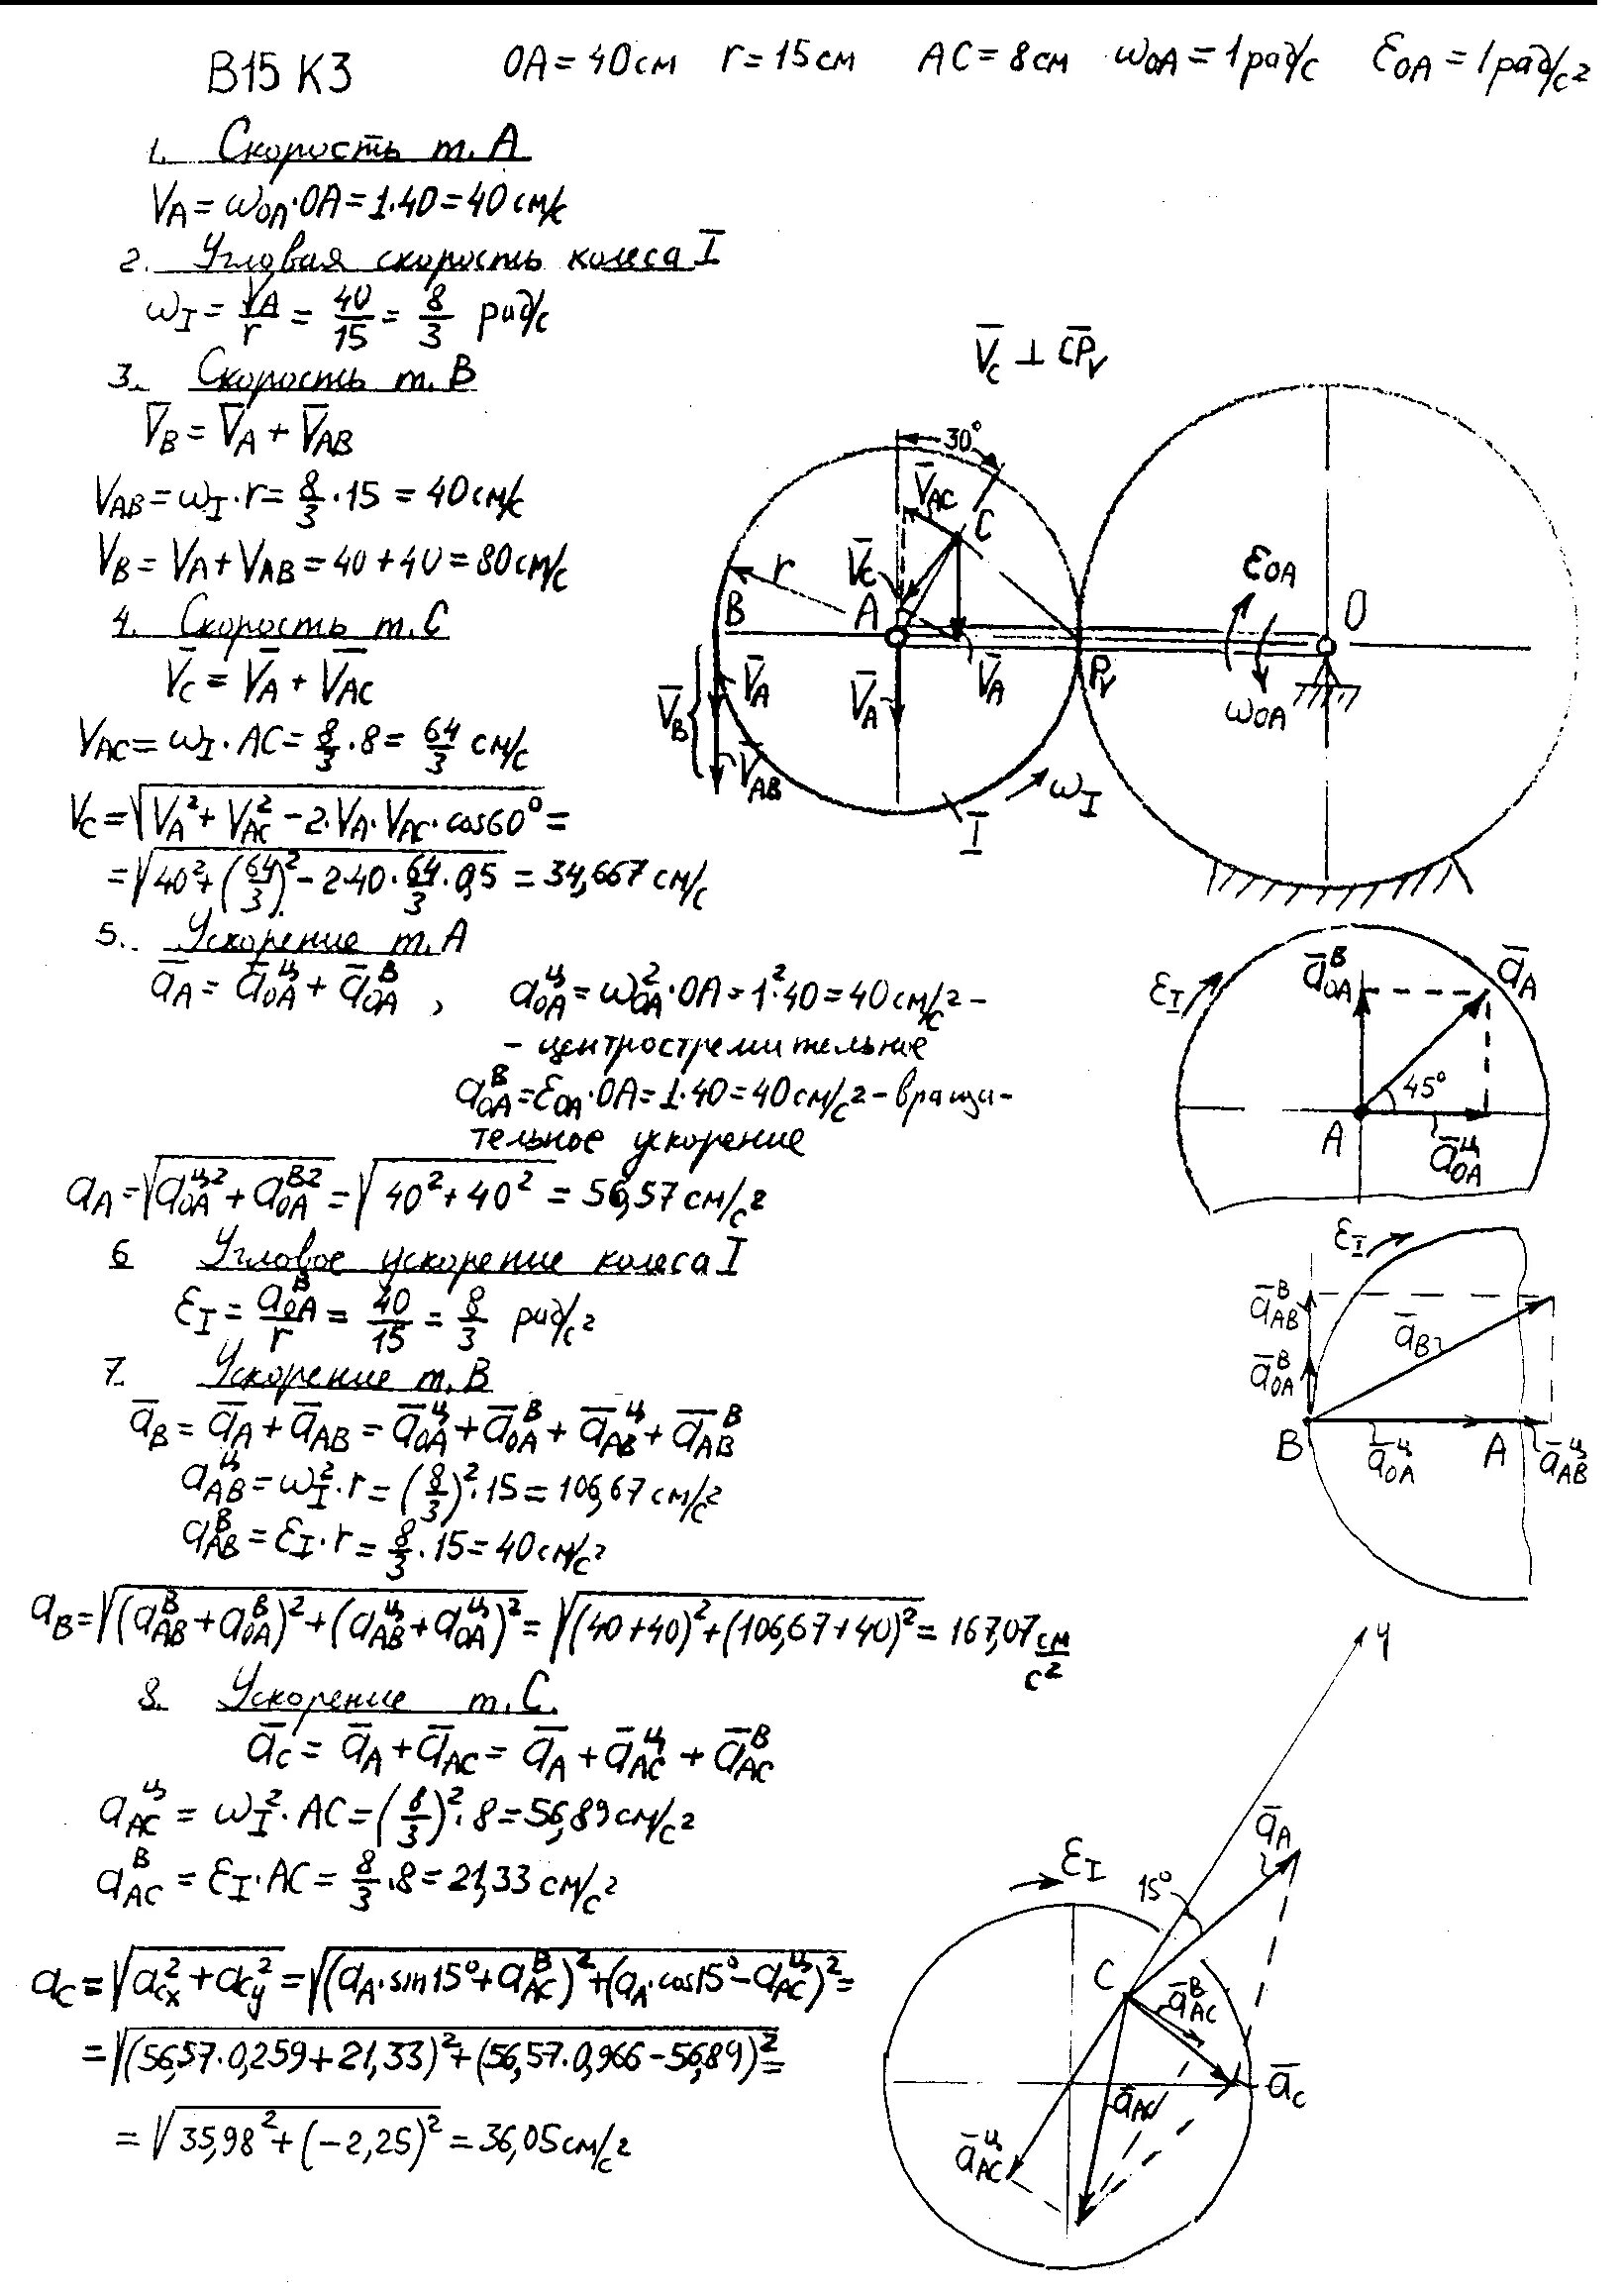 В15 К3   OA = 40см   r = 15см   AC = 8см   ω_OA = 1 рад/с   ε_OA = 1 рад/с²
1. Скорость т. А
V_A = ω_OA·OA = 1·40 = 40 см/с
2. Угловая скорость колеса I
ω_I = V_A/r = 40/15 = 8/3 рад/с
3. Скорость т. В
V̄_B = V̄_A + V̄_AB
V_AB = ω_I·r = 8/3·15 = 40 см/с
V_B = V_A + V_AB = 40 + 40 = 80 см/с
4. Скорость т. С
V̄_C = V̄_A + V̄_AC
V_AC = ω_I·AC = 8/3·8 = 64/3 см/с
V_C = √(V_A² + V_AC² - 2·V_A·V_AC·cos60°) =
= √(40² + (64/3)² - 2·40·64/3·0,5) = 34,667 см/с
V̄_C ⊥ C̄P̄_V
30°
V̄_AC
C
V̄_C
r
B
A
ε_OA
O
V̄_A
V̄_A
V̄_A
P_V
V̄_B
ω_OA
V̄_AB
ω_I
I
5. Ускорение т. А
ā_A = ā_OA^ц + ā_OA^в , a_OA^ц = ω_OA²·OA = 1²·40 = 40 см/с² -
- центростремительное
a_OA^в = ε_OA·OA = 1·40 = 40 см/с² - враща-
тельное ускорение
a_A = √(a_OA^ц2 + a_OA^в2) = √(40² + 40²) = 56,57 см/с²
ε_I
ā_OA^в
ā_A
45°
A
ā_OA^ц
6 Угловое ускорение колеса I
ε_I = a_OA^в/r = 40/15 = 8/3 рад/с²
7. Ускорение т. В
ā_B = ā_A + ā_AB = ā_OA^ц + ā_OA^в + ā_AB^ц + ā_AB^в
a_AB^ц = ω_I²·r = (8/3)²·15 = 106,67 см/с²
a_AB^в = ε_I·r = 8/3·15 = 40 см/с²
a_B = √((a_AB^в + a_OA^в)² + (a_AB^ц + a_OA^ц)²) = √((40+40)² + (106,67+40)²) = 167,07 см/с²
ε_I
ā_AB^в
ā_B
ā_OA^в
B
ā_OA^ц
A
ā_AB^ц
8. Ускорение т. С.
ā_C = ā_A + ā_AC = ā_A + ā_AC^ц + ā_AC^в
a_AC^ц = ω_I²·AC = (8/3)²·8 = 56,89 см/с²
a_AC^в = ε_I·AC = 8/3·8 = 21,33 см/с²
a_C = √(a_Cx² + a_Cy²) = √((a_A·sin15° + a_AC^в)² + (a_A·cos15° - a_AC^ц)²) =
= √((56,57·0,259 + 21,33)² + (56,57·0,966 - 56,89)²) =
= √(35,98² + (-2,25)²) = 36,05 см/с²
y
ā_A
ε_I
15°
C
ā_AC^в
ā_C
ā_AC
ā_AC^ц